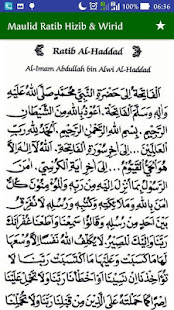 06:36
Maulid Ratib Hizib & Wirid
Ratib Al-Haddad
Al-Imam Abdullah bin Alwi Al-Haddad
اَلْفَاتِحَةُ إِلَى حَضْرَةِ النَّبِيِّ مُحَمَّدٍ صَلَّى اللهُ عَلَيْهِ
وَآلِهِ وَسَلَّمَ الْفَاتِحَةَ. أَعُوذُ بِاللهِ مِنَ الشَّيْطَانِ
الرَّجِيْمِ. بِسْمِ اللهِ الرَّحْمٰنِ الرَّحِيْمِ
هُوَ الْحَيُّ الْقَيُّوْمُ آمَنَ
الرَّسُوْلُ بِمَا أُنْزِلَ إِلَيْهِ مِنْ رَبِّهِ وَالْمُؤْمِنُوْنَ كُلٌّ
آمَنَ بِاللهِ وَمَلَائِكَتِهِ وَكُتُبِهِ وَرُسُلِهِ لَا نُفَرِّقُ
بَيْنَ أَحَدٍ مِنْ رُسُلِهِ وَقَالُوْا سَمِعْنَا وَأَطَعْنَا غُفْرَانَكَ
رَبَّنَا وَإِلَيْكَ الْمَصِيْرُ لَا يُكَلِّفُ اللهُ نَفْسًا إِلَّا وُسْعَهَا
لَهَا مَا كَسَبَتْ وَعَلَيْهَا مَا اكْتَسَبَتْ رَبَّنَا لَا
تُؤَاخِذْنَا إِنْ نَسِيْنَا أَوْ أَخْطَأْنَا رَبَّنَا وَلَا تَحْمِلْ عَلَيْنَا
إِصْرًا كَمَا حَمَلْتَهُ عَلَى الَّذِيْنَ مِنْ قَبْلِنَا رَبَّنَا وَلَا تُحَمِّلْنَا